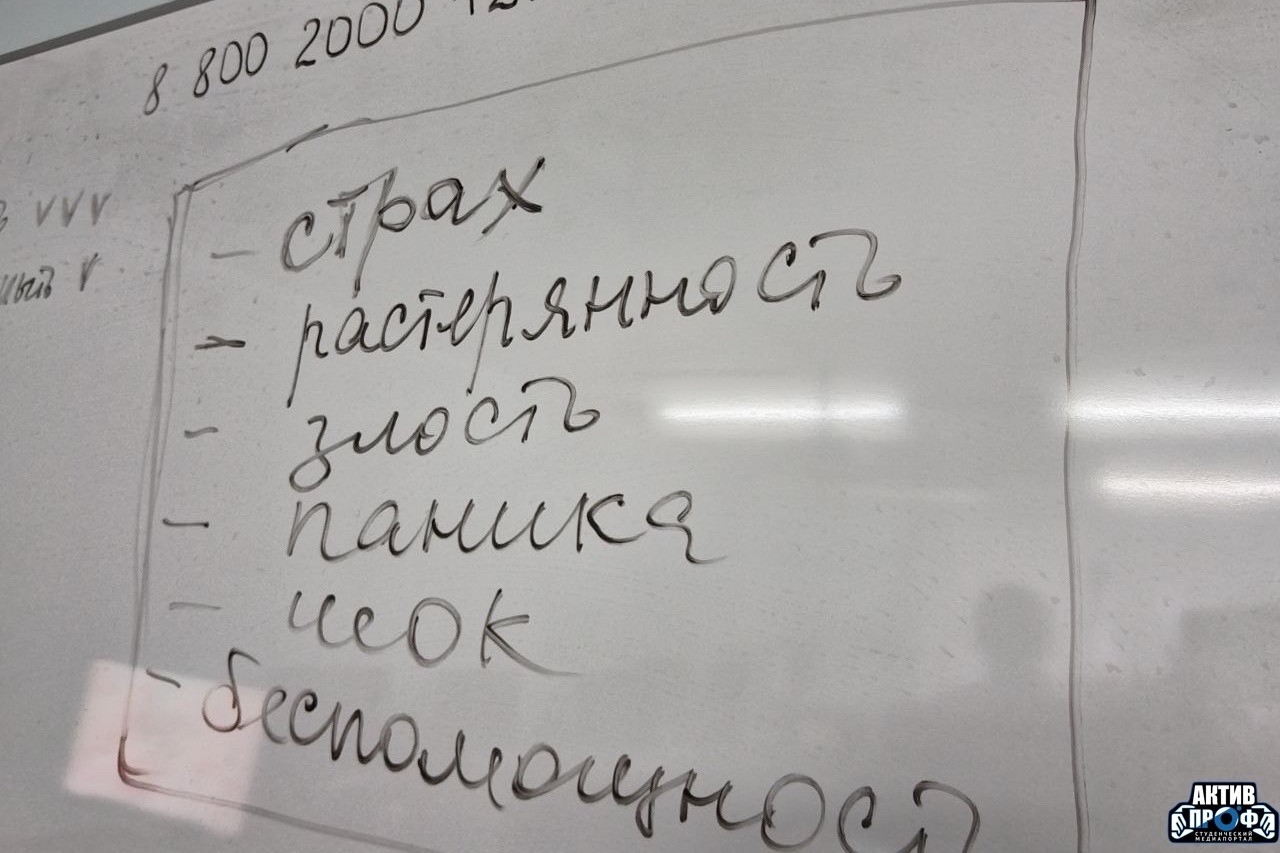 8 800 2000
- страх
- растерянность
- злость
- паника
- шок
- беспомощност
АКТИВ
ПРОФ
СТУДЕНЧЕСКИЙ
МЕДИАПОРТАЛ